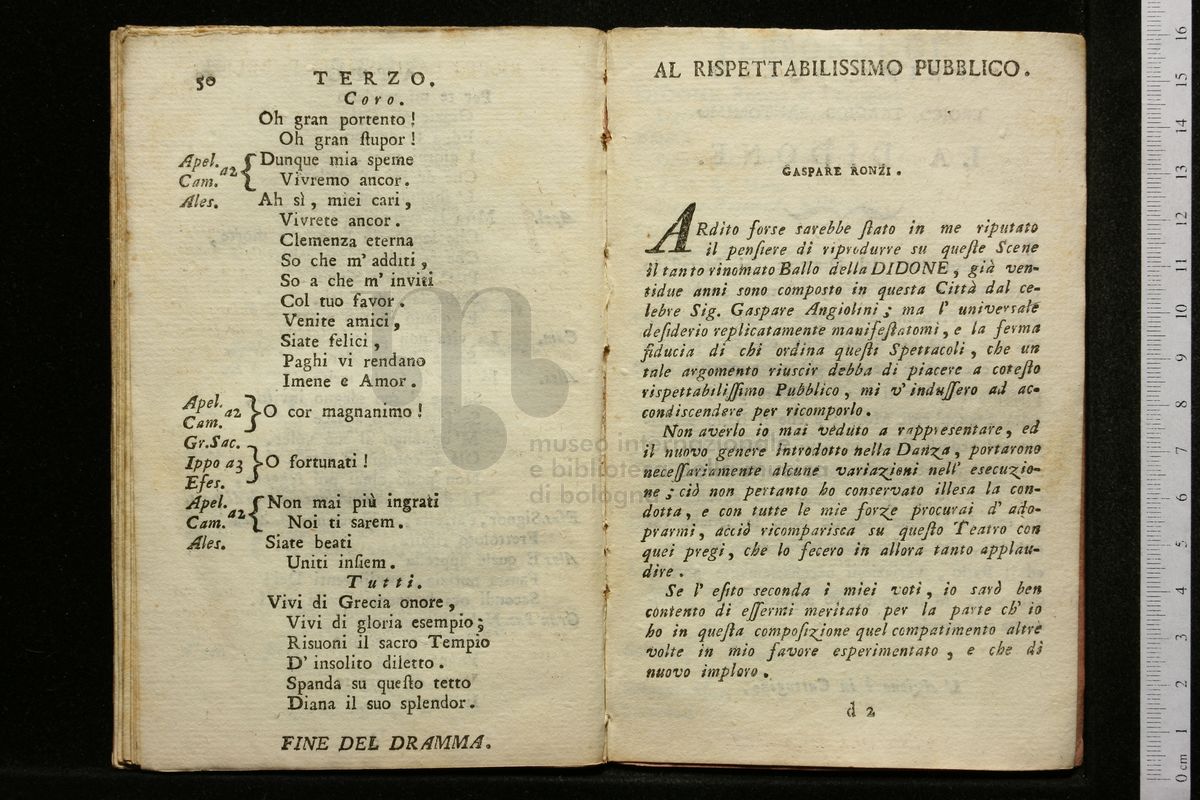 50 TERZO.
Coro.
Oh gran portento!
Oh gran ſtupor!
Apel. Cam. a2 Dunque mia speme
Vivremo ancor.
Ales. Ah sì, miei cari,
Vivrete ancor.
Clemenza eterna
So che m' additi,
So a che m' inviti
Col tuo favor.
Venite amici,
Siate felici,
Paghi vi rendano
Imene e Amor.
Apel. Cam. a2 O cor magnanimo!
Gr. Sac. Ippo a3 Efes. O fortunati!
Apel. Cam. a2 Non mai più ingrati
Noi ti sarem.
Ales. Siate beati
Uniti inſiem.
Tutti.
Vivi di Grecia onore,
Vivi di gloria esempio;
Risuoni il sacro Tempio
D' insolito diletto.
Spanda su queſto tetto
Diana il suo splendor.
FINE DEL DRAMMA.
AL RISPETTABILISSIMO PUBBLICO.
GASPARE RONZI.
ARdito forse sarebbe ſtato in me riputato
il penſiere di riprodurre su queſte Scene
il tanto rinomato Ballo della DIDONE, già ven-
tidue anni sono composto in questa Città dal ce-
lebre Sig. Gaspare Angiolini; ma l' universale
deſiderio replicatamente manifeſtatomi, e la ferma
fiducia di chi ordina queſti Spettacoli, che un
tale argomento riuscir debba di piacere a coteſto
rispettabiliſſimo Pubblico, mi v' induſſero ad ac-
condiscendere per ricomporlo.
Non averlo io mai veduto a rappresentare, ed
il nuovo genere Introdotto nella Danza, portarono
neceſſariamente alcune variazioni nell' esecuzio-
ne; ciò non pertanto ho conservato illesa la con-
dotta, e con tutte le mie forze procurai d' ado-
prarmi, acciò ricomparisca su queſto Teatro con
quei pregi, che lo fecero in allora tanto applau-
dire.
Se l' eſito seconda i miei voti, io sarò ben
contento di eſſermi meritato per la parte ch' io
ho in queſta compoſizione quel compatimento altre
volte in mio favore esperimentato, e che di
nuovo imploro.
d 2
museo internazionale
e biblioteca della musica
di bologna
0 cm 1 2 3 4 5 6 7 8 9 10 11 12 13 14 15 16